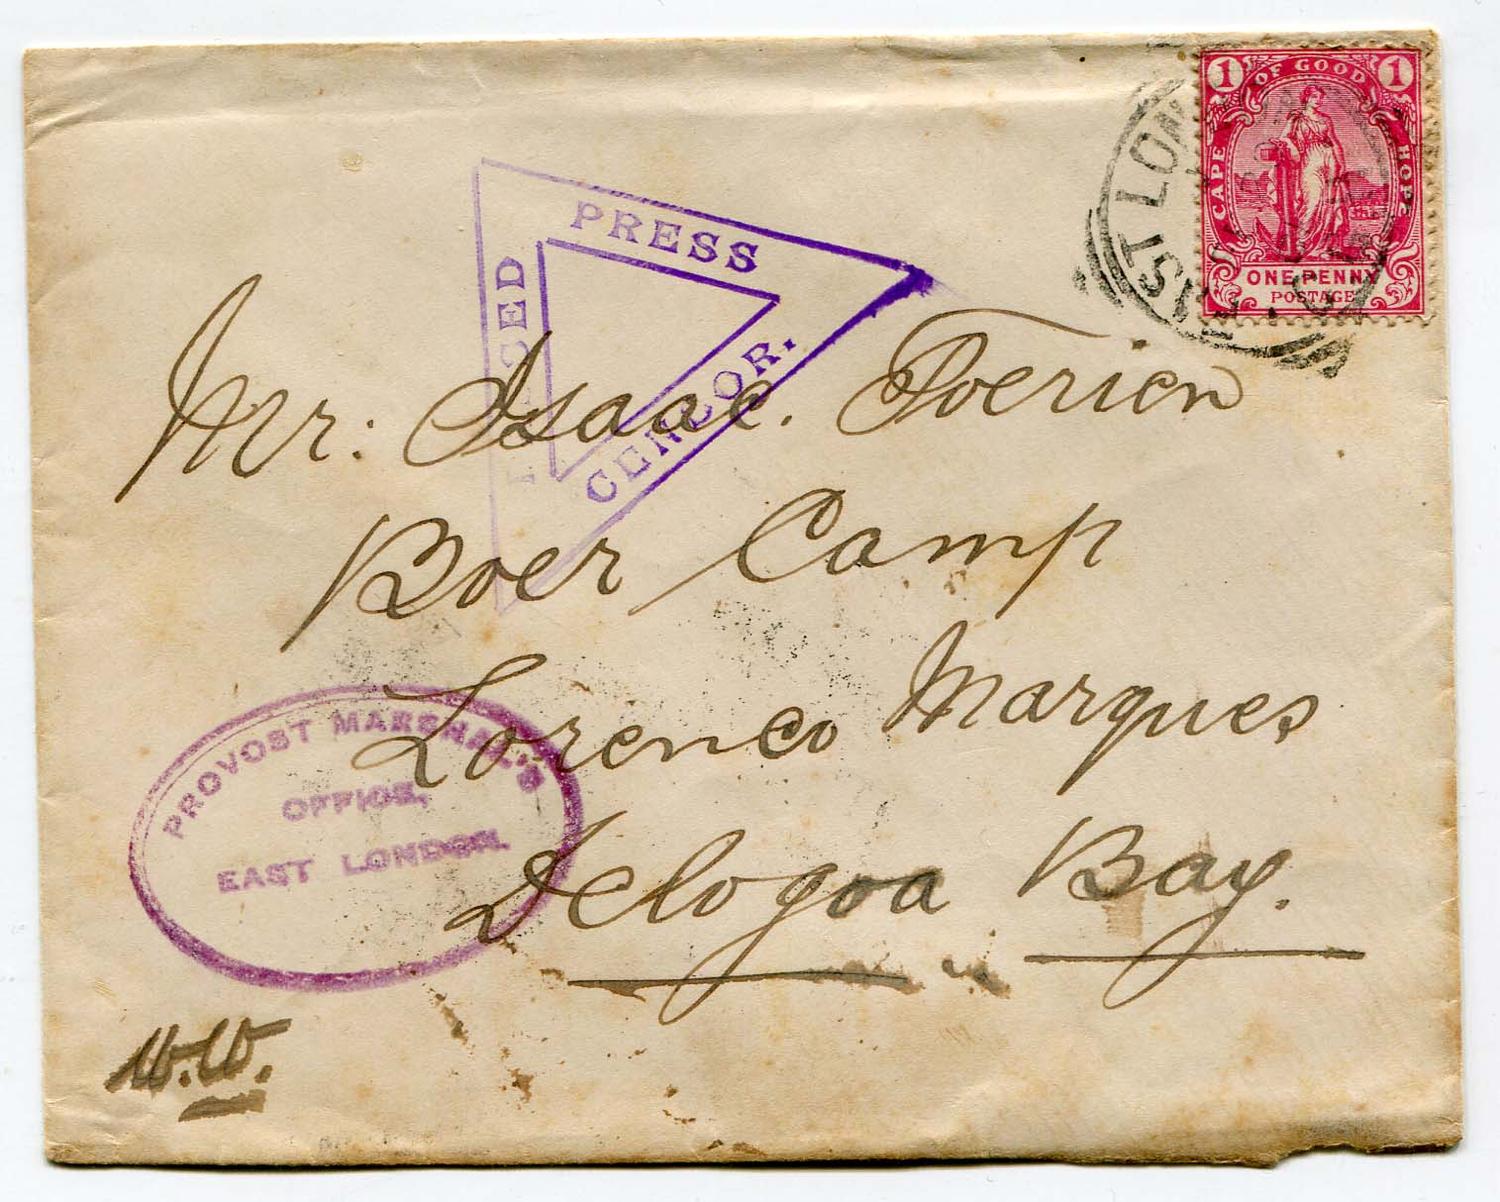 1 OF GOOD 1
CAPE
HOPE
ONE PENNY
POSTAGE
ST LON
PRESS
CENSOR.
Mr: Isaac. Foerien
Boer Camp
Lorenco Marques
Delogoa Bay.
PROVOST MARSHAL'S
OFFICE,
EAST LONDON.
W.W.